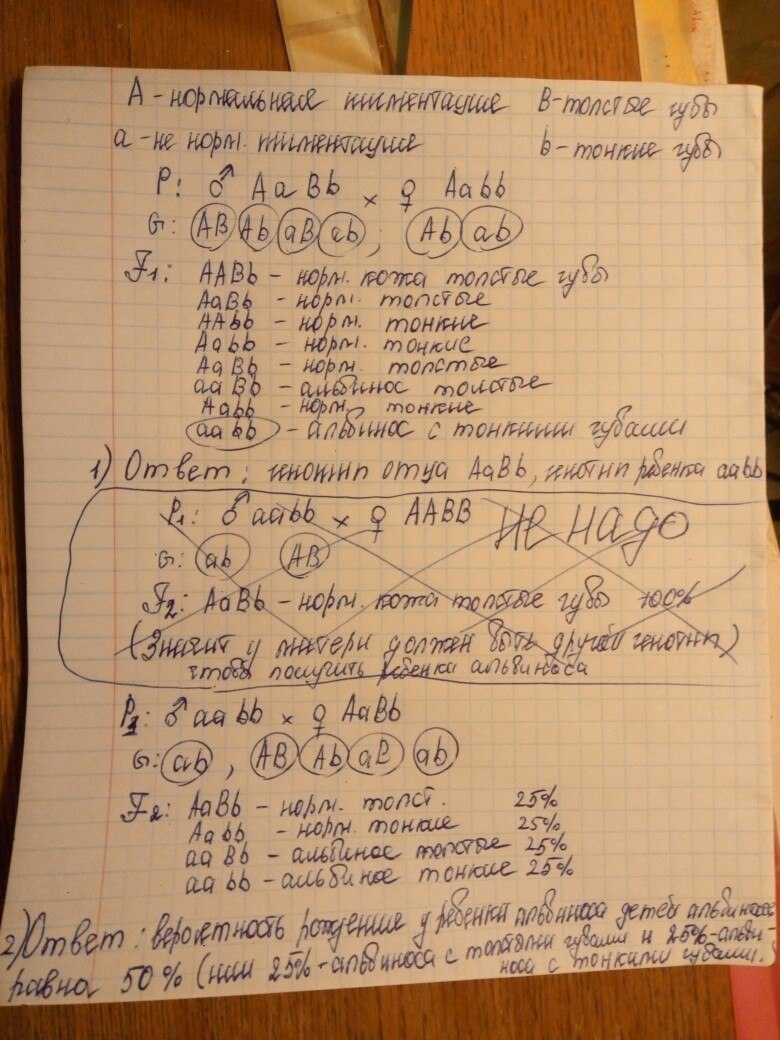 A - нормальная пигментация B - толстые губы
a - не норм. пигментация b - тонкие губы
P: ♂ AaBb × ♀ Aabb
G: AB Ab aB ab ; Ab ab
F1: AABb - норм. кожа толстые губы
AaBb - норм. толстые
AAbb - норм. тонкие
Aabb - норм. тонкие
AaBb - норм. толстые
aaBb - альбинос толстые
Aabb - норм. тонкие
aabb - альбинос с тонкими губами
1) Ответ: генотип отца AaBb, генотип ребенка aabb
P1: ♂ aabb × ♀ AABB Не надо
G: ab AB
F2: AaBb - норм. кожа толстые губы 100%
(Значит у матери должен быть другой генотип)
чтобы получить ребенка альбиноса
P2: ♂ aabb × ♀ AaBb
G: ab , AB Ab aB ab
F2: AaBb - норм. толст. 25%
Aabb - норм. тонкие 25%
aaBb - альбинос толстые 25%
aabb - альбинос тонкие 25%
2) Ответ: вероятность рождение у ребенка альбиноса детей альбиносов
равна 50% (или 25% - альбиноса с толстыми губами и 25% - альби-
носа с тонкими губами.